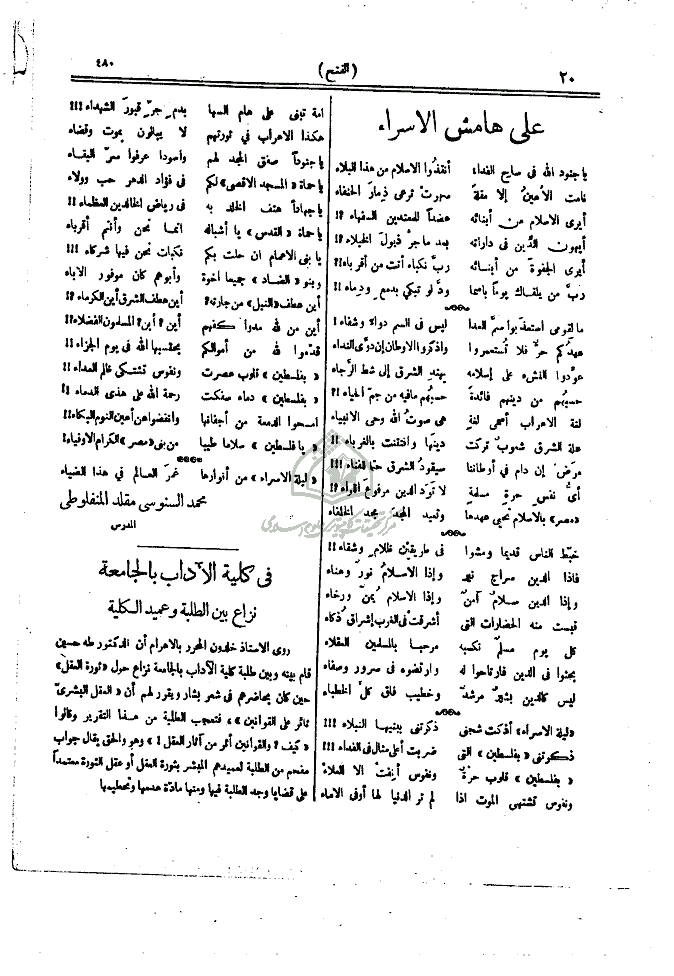 ٢٠
(الفتح)
٤٨٠
على هامش الاسراء
ياجنود الله فى ساح الفداء أنقذوا الاسلام من هذا البلاء
نامت الأعين إلا مقلة سهرت ترعى ذمار الحنفاء
أيرى الاسلام من أبنائه عضداً للمعتدين السفهاء ؟!
أيهون الدّين فى داراته بعد ما جرّ ذيول الخيلاء ؟!
أيرى الجفوة من أبنائه ربّ نكباء أتت من أقرباء !؟
ربّ من يلقاك يوماً باسما ودّ لو تبكي بدمع ودماء !!
مالقومى استعذبوا سمّ العدا ليس فى السم دواء وشفاء !
عهدكم حرّ فلا تستعمروا واذكروا الاوطان إن دوّى النداء
عوّدوا النشء على إسلامه يهتد الشرق إلى شط الرّجاء
حسبهم من دينهم فائدة حسبهم مافيه من جمّ الحياء !!
لغة الاعراب أسمى لغة هى صوت الله وحى الانبياء
علة الشرق شعوب تركت دينها وافتتنت بالغرباء !!
مرض إن دام فى أوطاننا سيقود الشرق حتما للفناء !!!
أىّ نفس حرة مسلمة لا تودّ الدين مرفوع اللواء !؟
«مصر» بالاسلام تحيى عهدها وتعيد المجد مجد الخلفاء
خبط الناس قديما ومشوا فى طريقين ظلام وشقاء !!
فاذا الدين سراج نير وإذا الاسلام نور وهناء
وإذا الدين سلام آمن وإذا الاسلام يمن ورخاء
قبست منه الحضارات التى أشرقت فى الغرب إشراق ذكاء
كل يوم مسلم نكسبه مرحبا بالمسلمين العقلاء
بحثوا فى الدين فارتاحوا له وارتضوه فى سرور وصفاء
ليس كالدين بشير مرشد وخطيب فاق كلّ الخطباء
«ليلة الاسراء» أذكت شجنى ذكرتنى ببنيها النبلاء !!
ذكرتونى «بفلسطين» التى ضربت أعلى مثال فى الفداء !!!
«بفلسطين» قلوب حرة ونفوس أبت الا العلاء
ونفوس تشتهى الموت اذا لم تر الدنيا لها أوفى الاماء
امة تبنى على هام السها بدم حرّ قبور الشهداء !!!
هكذا الاعراب فى ثورتهم لا يبالون بموت وقضاء
ياجنوداً صفق المجد لهم وأسودا عرفوا سرّ البقاء
ياحماة «المسجد الاقصى» لكم فى فؤاد الدهر حب وولاء
ياجهاداً هتف الخلد به فى رياض الخالدين العظماء !!
ياحماة «القدس» يا أشباله انما نحن وأنتم أقرباء
يابنى الاعمام ان حلت بكم نكبات نحن فيها شركاء !!!
وبنو «الضاد» جميعا اخوة وأبوهم كان موفور الاباء
أين عطف «النيل» من جارته ؟ أين عطف الشرق أين الكرماء ؟!
أين من لله مدوا كفهم أين ؟ أين ؟ المسلمون الفضلاء !؟
قدّموا لله من أموالكم يحتسبها الله فى يوم الجزاء !!
«بفلسطين» قلوب عصرت ونفوس تشتكى ظلم العداء !!
«بفلسطين» دماء سفكت رحمة الله على هذى الدماء !
امسحوا الدمعة من أجفانها وانفضوا عن أعين النوم البكاء !
«يا فلسطين» سلاما طيبا من بنى «مصر» الكرام الاوفياء !
«ليلة الاسراء» من أنوارها غمر العالم فى هذا الضياء
محمد السنوسى مقلد المنفلوطى
المدرس
فى كلية الآداب بالجامعة
نزاع بين الطلبة وعميد الكلية
روى الاستاذ خلدون المحرر بالاهرام أن الدكتور طه حسين
قام بينه وبين طلبة كلية الآداب بالجامعة نزاع حول «ثورة العقل»
حين كان يحاضرهم فى شعر بشار ويقرر لهم أن «العقل البشرىّ
ثائر على القوانين»، فتعجب الطلبة من هذا التقرير وقالوا
«كيف ؟ والقوانين أثر من آثار العقل !» وهو والحق يقال جواب
مفحم من الطلبة لعميدهم المبشر بثورة العقل أو عقل الثورة معتمداً
على قضايا وجد الطلبة فيها ومنها مادّة هدمها وتحطيمها